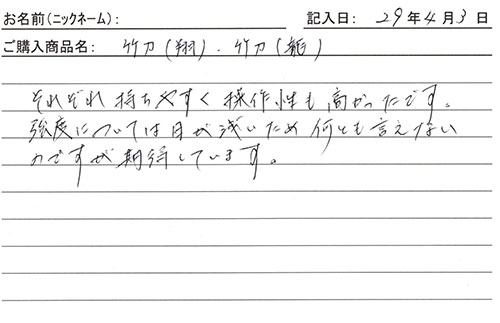 お名前（ニックネーム）： 記入日： 29年4月3日
ご購入商品名： 竹刀（翔）．竹刀（龍）
それぞれ持ちやすく操作性も高かったです。
強度については日が浅いため何とも言えない
のですが期待しています。